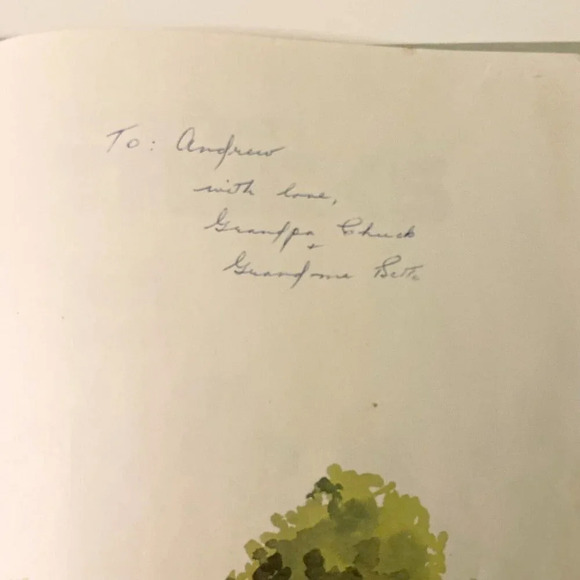 To: Andrew
with love,
Grandpa Chuck
+
Grandma